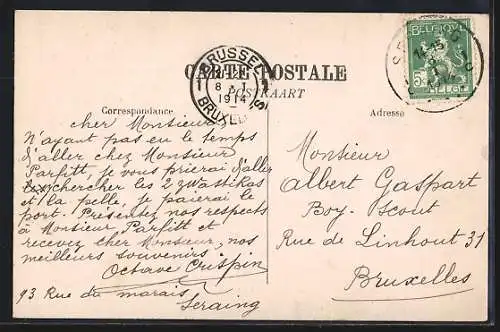 CARTE POSTALE
POSTKAART
BRUSSEL
8 I
1914
BRUXELLES
BELGIQUE
5
BELGIE
Correspondance
Adresse
cher Monsieur
N'ayant pas eu le temps
d'aller chez Monsieur
Parfitt, je vous prierai d'aller
rechercher les 2 zwastikas
et la pelle, je paierai le
port. Présentez nos respects
à Monsieur Parfitt et
recevez cher Monsieur, nos
meilleurs souvenirs
Octave Crispin
93 Rue du marais
Seraing
Monsieur
Albert Gaspart
Boy-Scout
Rue de Linhout 31
Bruxelles